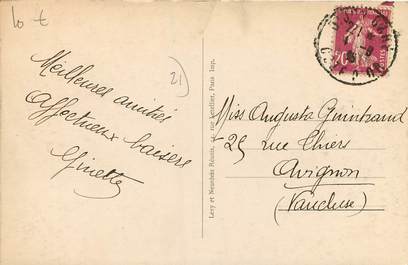 10 €
21)
Meilleures amitiés
affectueux baisers
Ginette
Levy et Neurdein Réunis, 44, rue Letellier, Paris Imp.
20
POSTES
Miss Augusta Guintrand
25 rue Thiers
Avignon
(Vaucluse)